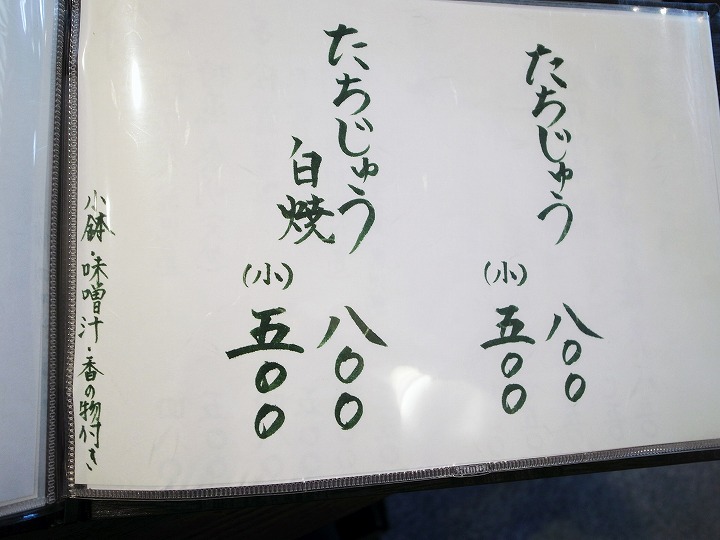 たちじゅう
八〇〇
(小)
五〇〇
たちじゅう
白焼
八〇〇
(小)
五〇〇
小鉢・味噌汁・香の物付き